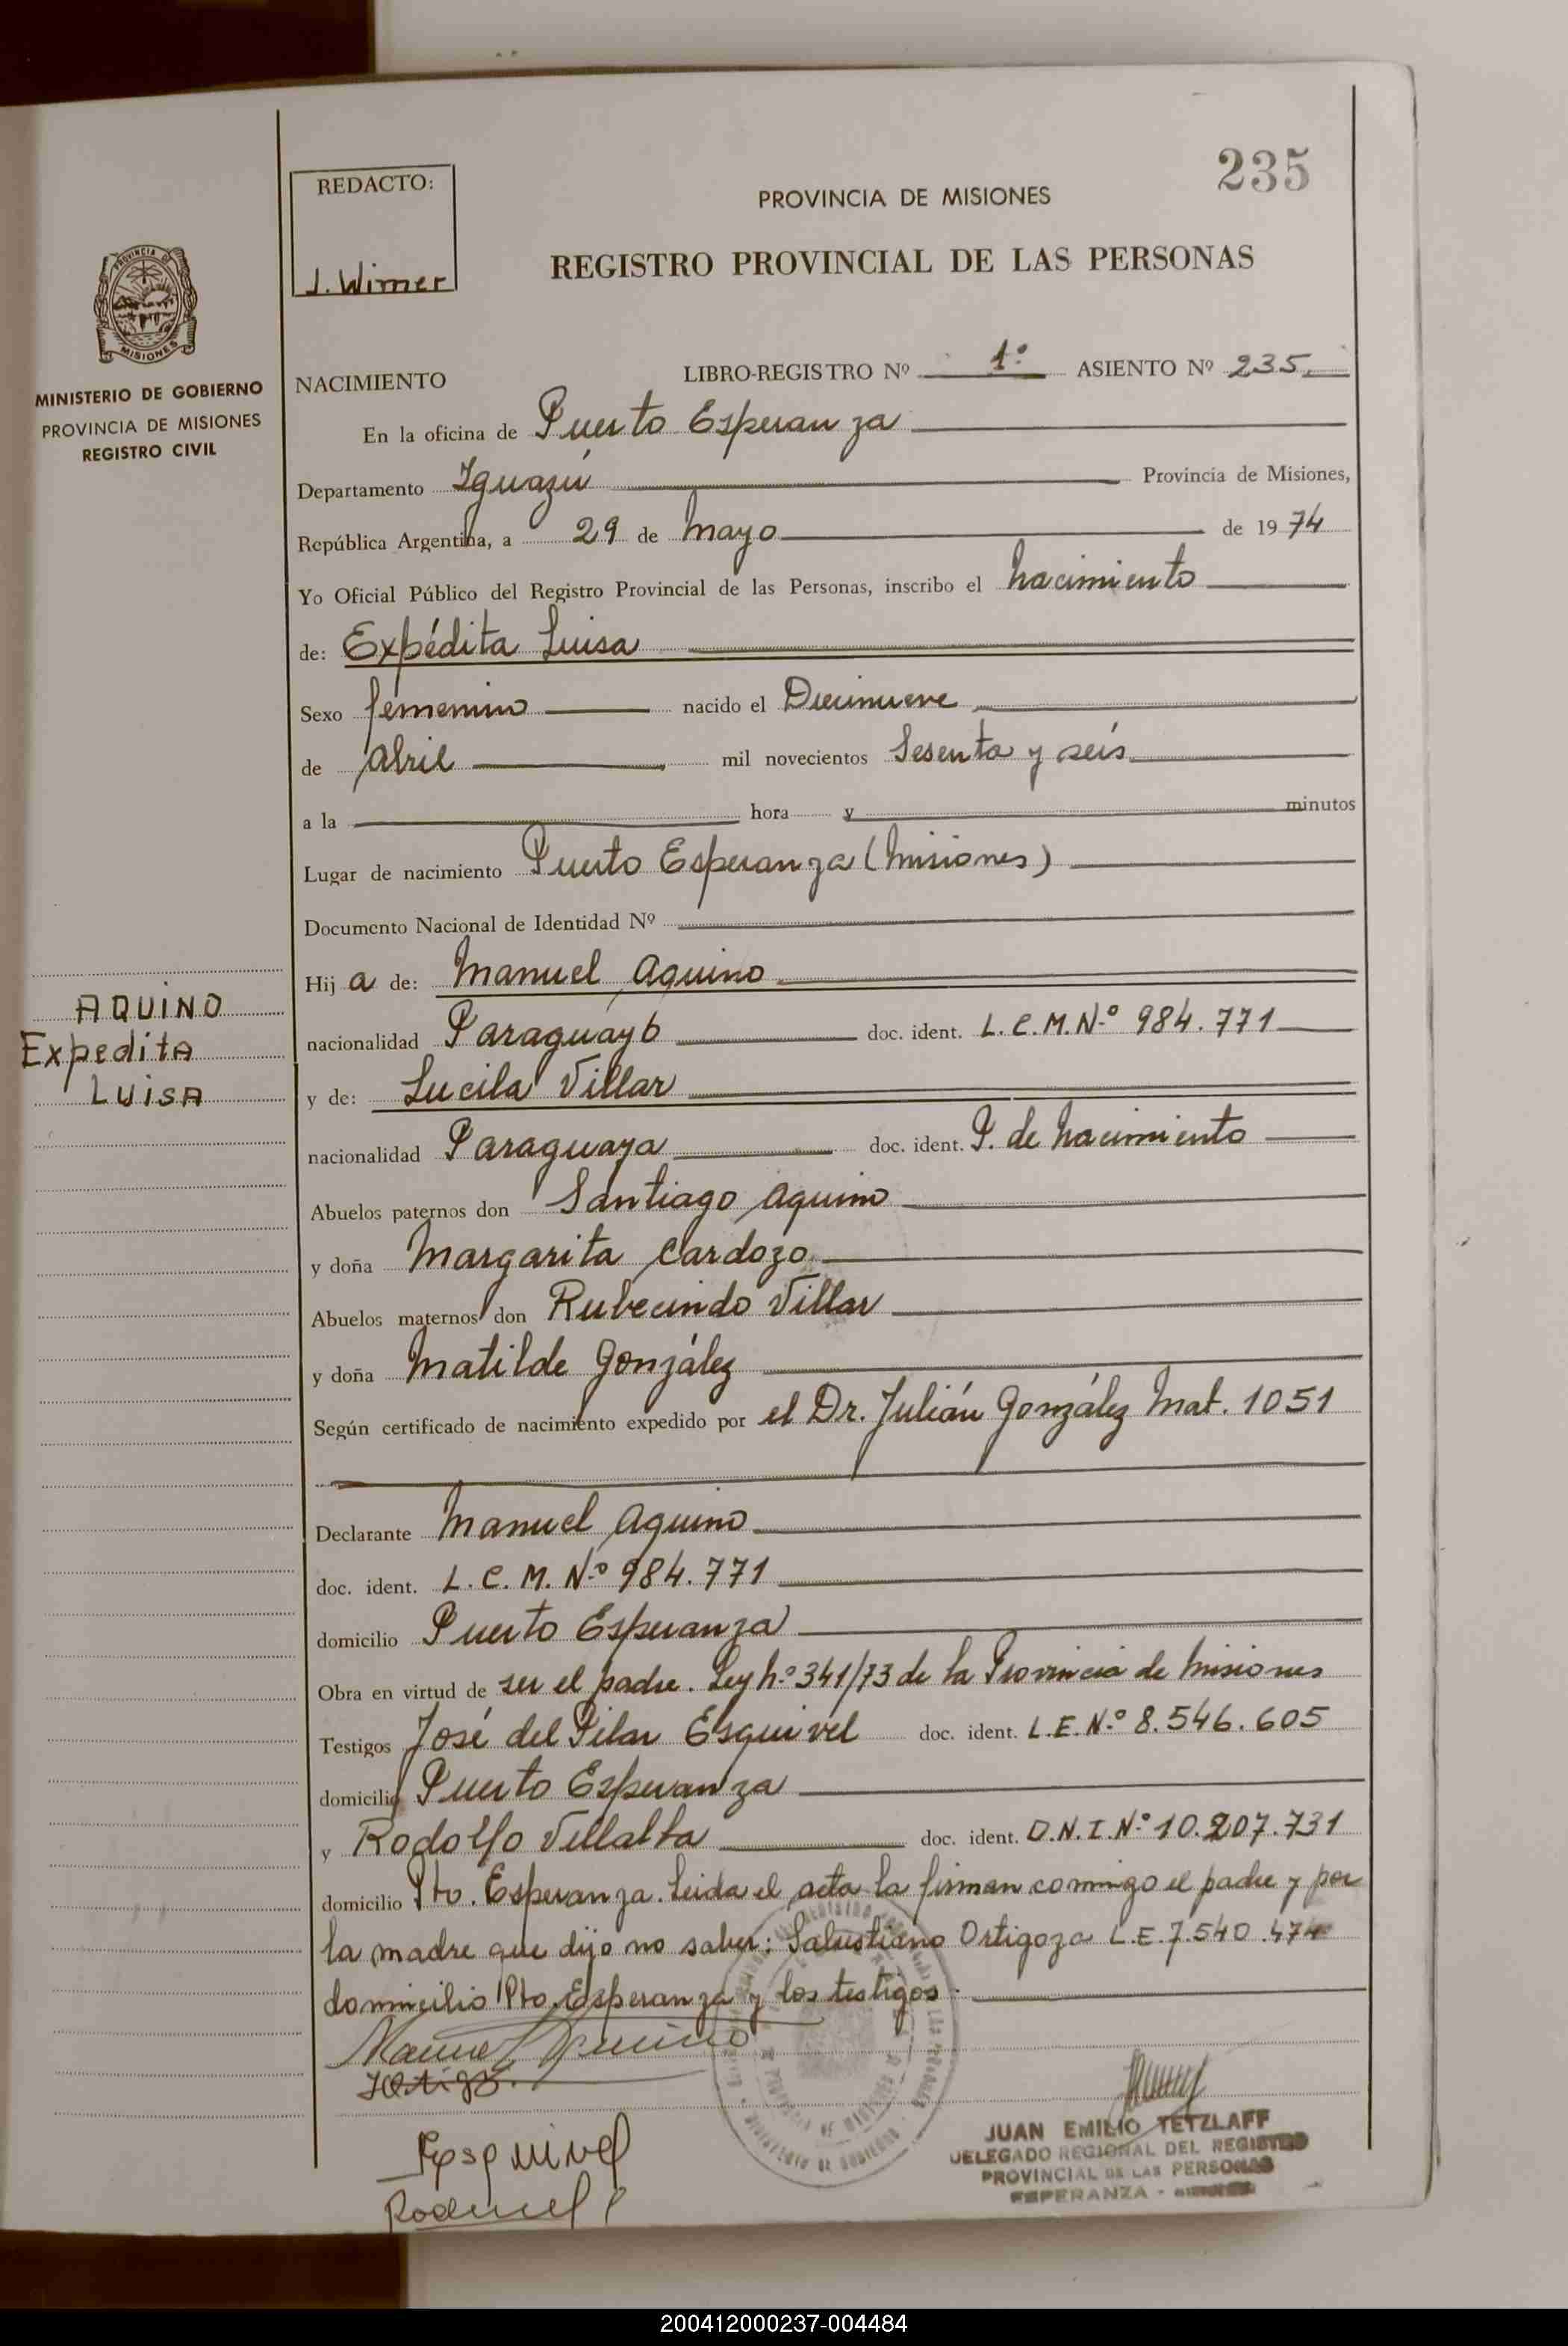 235
REDACTO:
J. Wimer
PROVINCIA DE MISIONES
REGISTRO PROVINCIAL DE LAS PERSONAS
PROVINCIA DE
MISIONES
MINISTERIO DE GOBIERNO
PROVINCIA DE MISIONES
REGISTRO CIVIL
NACIMIENTO LIBRO-REGISTRO Nº 1º ASIENTO Nº 235
En la oficina de Puerto Esperanza
Departamento Iguazú Provincia de Misiones,
República Argentina, a 29 de Mayo de 1974
Yo Oficial Público del Registro Provincial de las Personas, inscribo el Nacimiento
de: Expédita Luisa
Sexo femenino nacido el Diecinueve
de Abril mil novecientos Sesenta y seis
a la hora y minutos
Lugar de nacimiento Puerto Esperanza (Misiones)
Documento Nacional de Identidad Nº
Hij a de: Manuel Aquino
nacionalidad Paraguayo doc. ident. L.C.M.Nº 984.771
y de: Lucila Villar
nacionalidad Paraguaya doc. ident. P. de Nacimiento
Abuelos paternos don Santiago Aquino
y doña Margarita Cardozo
Abuelos maternos don Rubecindo Villar
y doña Matilde González
Según certificado de nacimiento expedido por el Dr. Julián González Mat. 1051
Declarante Manuel Aquino
doc. ident. L.C.M. Nº 984.771
domicilio Puerto Esperanza
Obra en virtud de ser el padre. Ley Nº 341/73 de la Provincia de Misiones
Testigos José del Pilar Esquivel doc. ident. L.E.Nº 8.546.605
domicilio Puerto Esperanza
y Rodolfo Villalba doc. ident. D.N.I.Nº 10.207.731
domicilio Pto. Esperanza. Leida el acta la firman conmigo el padre y por
la madre que dijo no saber: Salustiano Ortigoza L.E.7.540.474
domicilio Pto. Esperanza y los testigos.
Manuel Aquino
Esquivel
AQUINO
Expedita
LUISA
JUAN EMILIO TETZLAFF
DELEGADO REGIONAL DEL REGISTRO
PROVINCIAL DE LAS PERSONAS
ESPERANZA - MISIONES
200412000237-004484